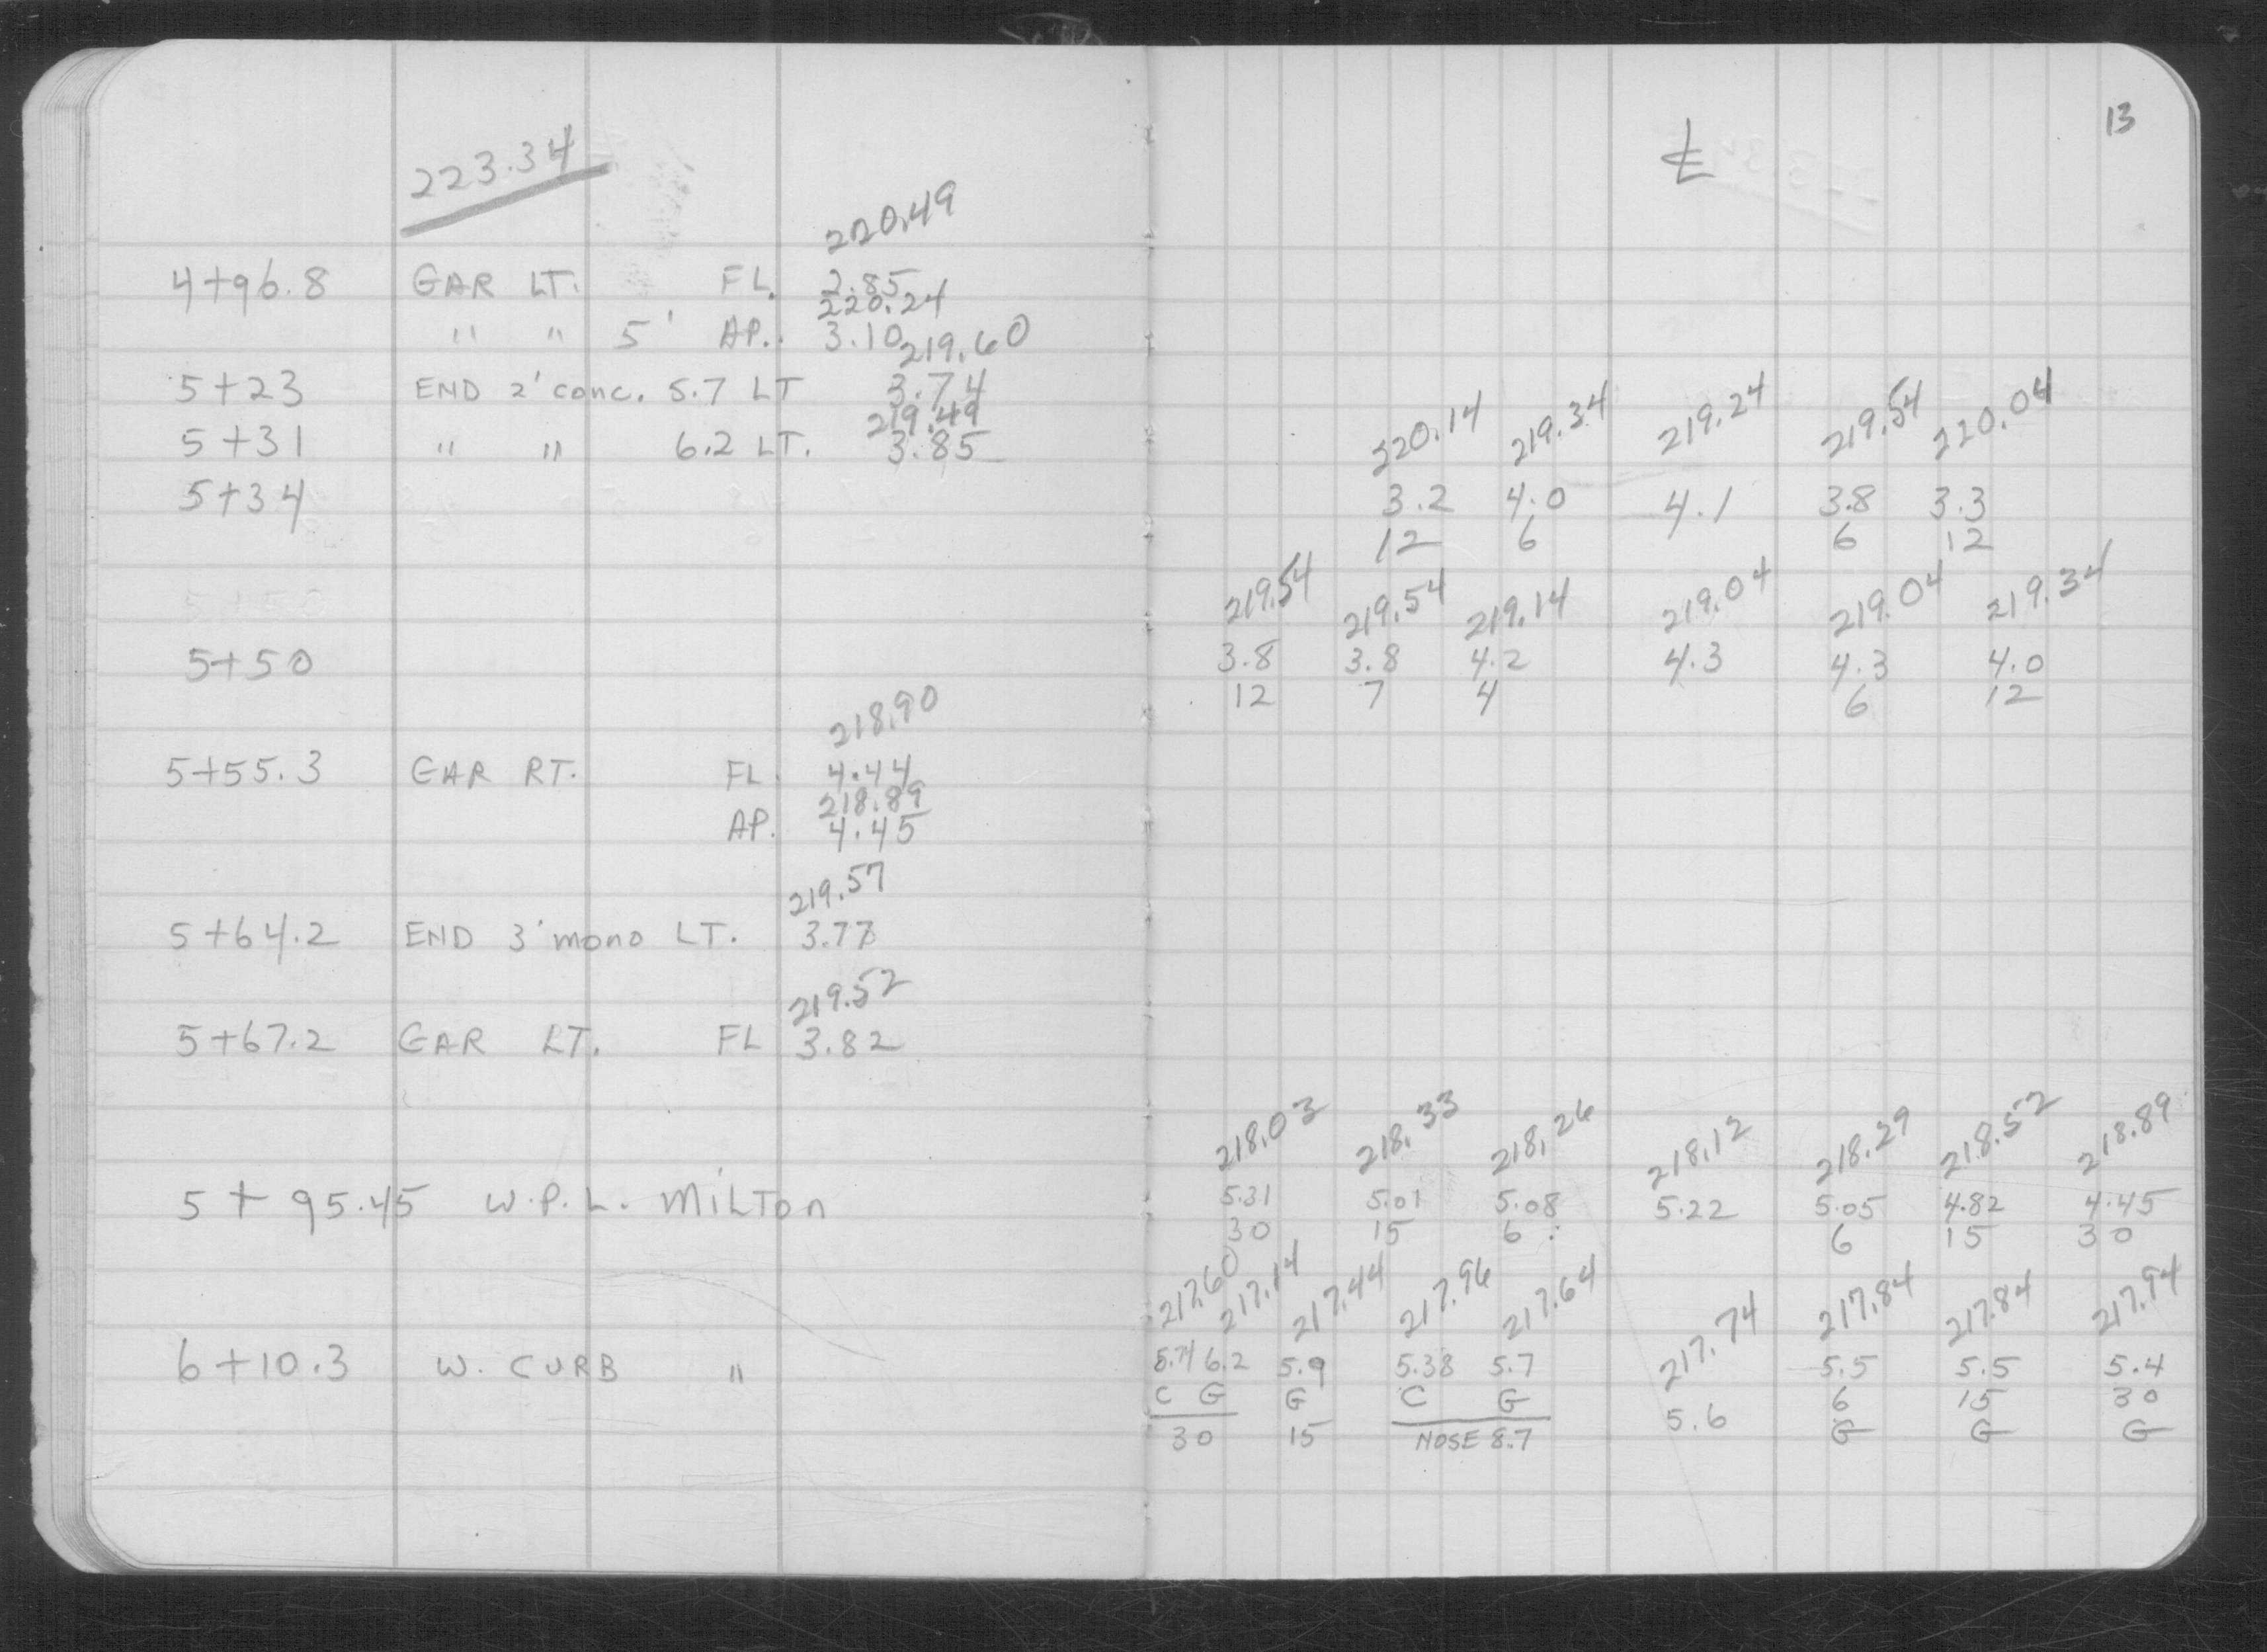 13
223.34
℄
220.49
4+96.8 GAR LT. FL. 2.85
220.24
" " 5' AP. 3.10
219.60
5+23 END 2' conc. 5.7 LT 3.74
219.49
5+31 " " 6.2 LT. 3.85
220.14 219.34 219.24 219.54 220.04
5+34 3.2 4.0 4.1 3.8 3.3
12 6 6 12
219.54 219.54 219.14 219.04 219.04 219.34
5+50 3.8 3.8 4.2 4.3 4.3 4.0
12 7 4 6 12
218.90
5+55.3 GAR RT. FL. 4.44
218.89
AP. 4.45
219.57
5+64.2 END 3' mono LT. 3.77
219.52
5+67.2 GAR LT. FL 3.82
218.03 218.33 218.26 218.12 218.29 218.52 218.89
5+95.45 W.P.L. MILTON 5.31 5.01 5.08 5.22 5.05 4.82 4.45
30 15 6 6 15 30
217.60 217.14 217.44 217.96 217.64 217.74 217.84 217.84 217.94
6+10.3 W. CURB " 5.74 6.2 5.9 5.38 5.7 5.6 5.5 5.5 5.4
C G G C G 6 15 30
30 15 NOSE 8.7 G G G